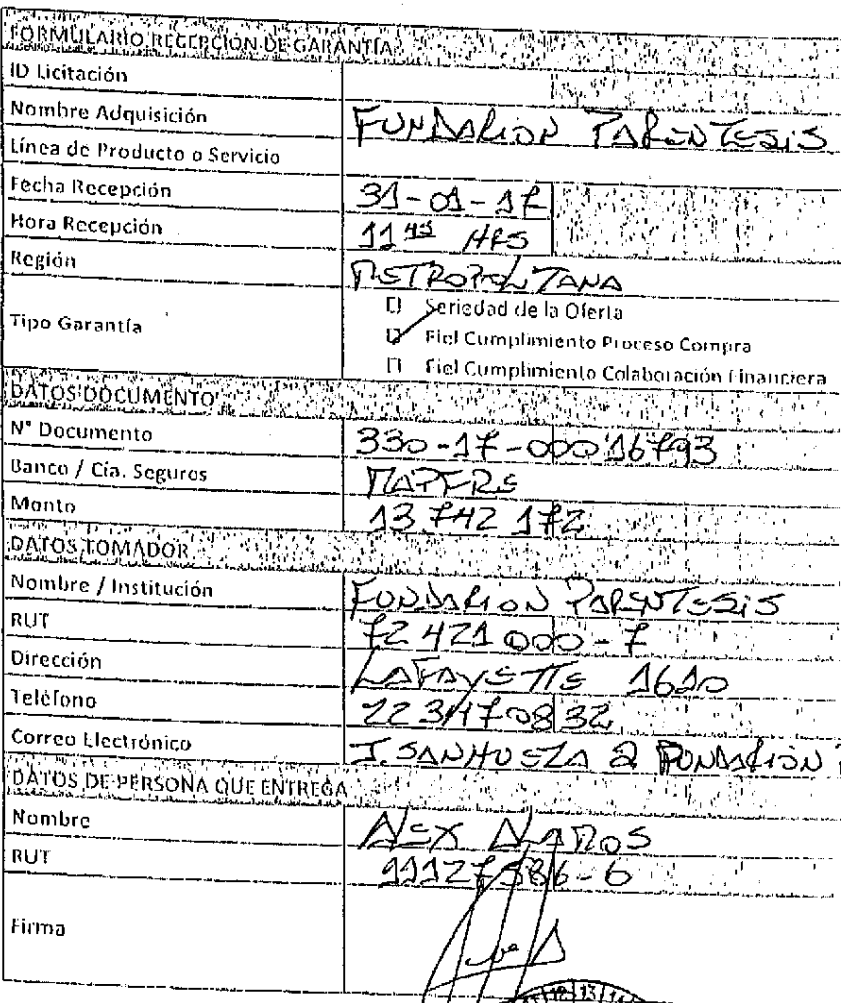 FORMULARIO RECEPCIÓN DE GARANTÍA
ID Licitación
Nombre Adquisición FUNDACION PARENTESIS
Línea de Producto o Servicio
Fecha Recepción 31-01-17
Hora Recepción 11 45 HRS
Región METROPOLITANA
Tipo Garantía
Seriedad de la Oferta
Fiel Cumplimiento Proceso Compra
Fiel Cumplimiento Colaboración Financiera
DATOS DOCUMENTO
N° Documento 330-17-00016793
Banco / Cía. Seguros MAPFRE
Monto 13 742 172
DATOS TOMADOR
Nombre / Institución FUNDACION PARENTESIS
RUT 72 421 000-7
Dirección LAFAYETTE 1610
Teléfono 22 3470832
Correo Electrónico J.SANHUEZA @ FUNDACION
DATOS DE PERSONA QUE ENTREGA
Nombre ALEX ALAMOS
RUT 11127586-6
Firma